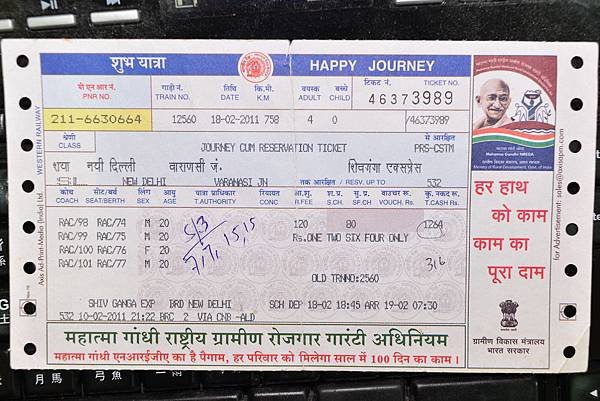 शुभ यात्रा HAPPY JOURNEY
WESTERN RAILWAY
पी एन आर नं. गाड़ी नं. तिथि कि.मी. वयस्क बच्चे टिकट नं. TICKET NO.
PNR NO. TRAIN NO. DATE K.M. ADULT CHILD 46373989
211-6630664 12560 18-02-2011 758 4 0 /46373989
श्रेणी JOURNEY CUM RESERVATION TICKET से आरक्षित
CLASS PRS-CSTM
शया नयी दिल्ली वाराणसी जं. शिवगंगा एक्सप्रेस
SL NEW DELHI VARANASI JN तक आरक्षित / RESV. UP TO 532
कोच सीट/बर्थ लिंग आयु यात्रा प्राधिकार रियायत आ.शु. सु.प्र. वाउचर रू. कु. नकद रू.
COACH SEAT/BERTH SEX AGE T.AUTHORITY CONC R.FEE S.CH. SF.CH VOUCH. Rs. T.CASH Rs.
RAC/98 RAC/74 M 20 120 80 1264
RAC/99 RAC/75 M 20 Rs.ONE TWO SIX FOUR ONLY
RAC/100 RAC/76 F 20
RAC/101 RAC/77 M 20
S/3
7,7,15,15
316
OLD TRNNO:2560
SHIV GANGA EXP BRD NEW DELHI SCH DEP 18-02 18:45 ARR 19-02 07:30
532 10-02-2011 21:22 BRC 2 VIA CNB -ALD
महात्मा गांधी राष्ट्रीय ग्रामीण रोजगार गारंटी अधिनियम
महात्मा गांधी एनआरईजीए का है पैगाम, हर परिवार को मिलेगा साल में 100 दिन का काम।
Axis Ad-Print-Media (India) Ltd.
Mahatma Gandhi NREGA
Ministry of Rural Development, Govt. of India
हर हाथ
को काम
काम का
पूरा दाम
ग्रामीण विकास मंत्रालय
भारत सरकार
月 弓 魚